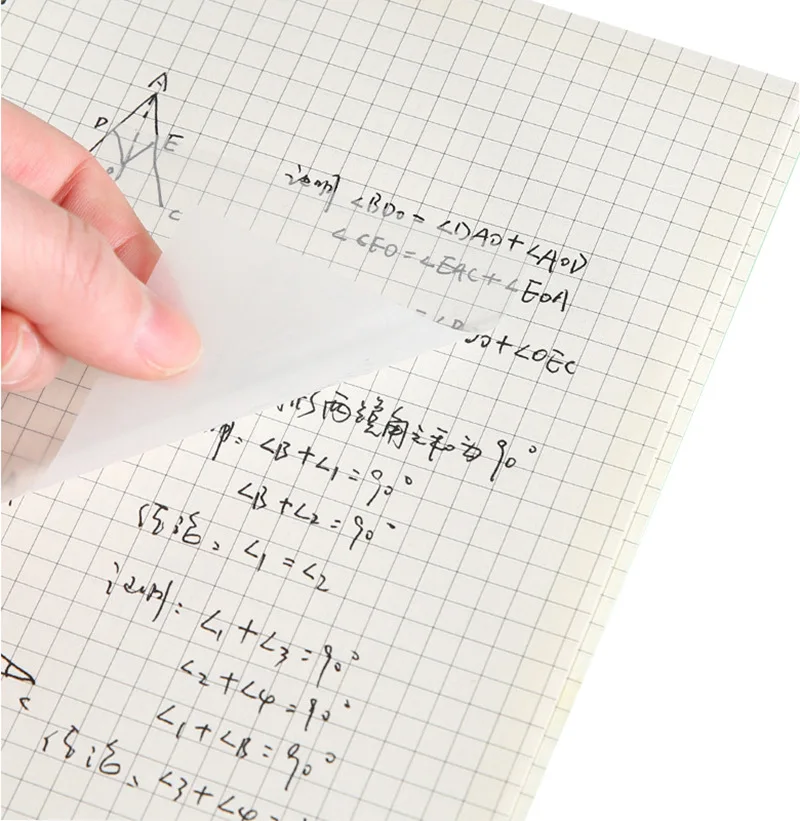 A
D
E
O
C
证明 ∠BDO = ∠DAO + ∠AOD
∠CEO = ∠EAC + ∠EOA
+ ∠OEC
两锐角之和为90°
∠B + ∠1 = 90°
∠B + ∠2 = 90°
结论: ∠1 = ∠2
证明: ∠1 + ∠3 = 90°
∠2 + ∠4 = 90°
∠1 + ∠B = 90°
C
结论: ∠3 + ∠4 =